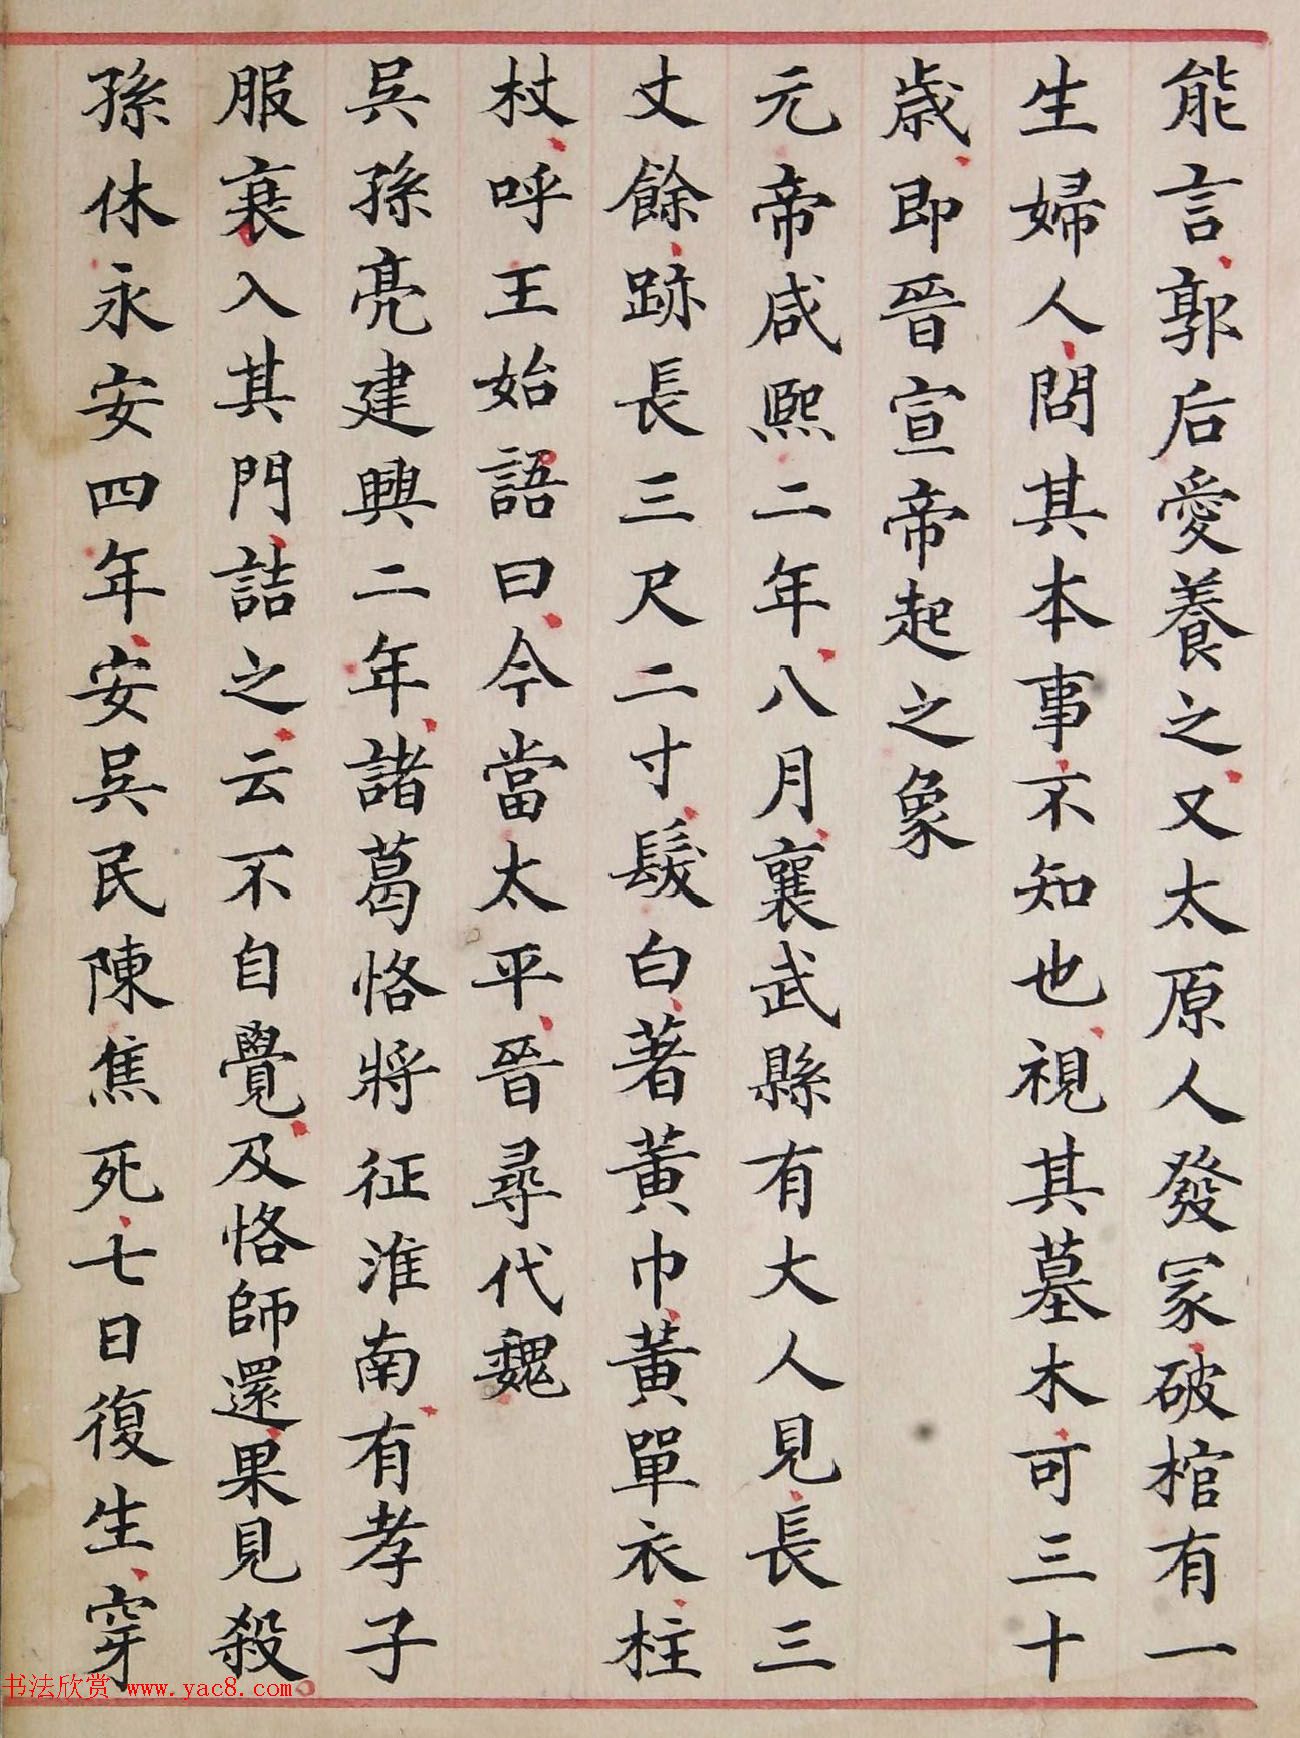 能言郭后愛養之又太原人發冡破棺有一
生婦人問其本事不知也視其墓木可三十
歳即晉宣帝起之象
元帝咸熙二年八月襄武縣有大人見長三
丈餘跡長三尺二寸髮白著黃巾黃單衣柱
杖呼王始語曰今當太平晉尋代魏
吳孫亮建興二年諸葛恪將征淮南有孝子
服衰入其門詰之云不自覺及恪師還果見殺
孫休永安四年安吳民陳焦死七日復生穿
书法欣赏 www.yac8.com